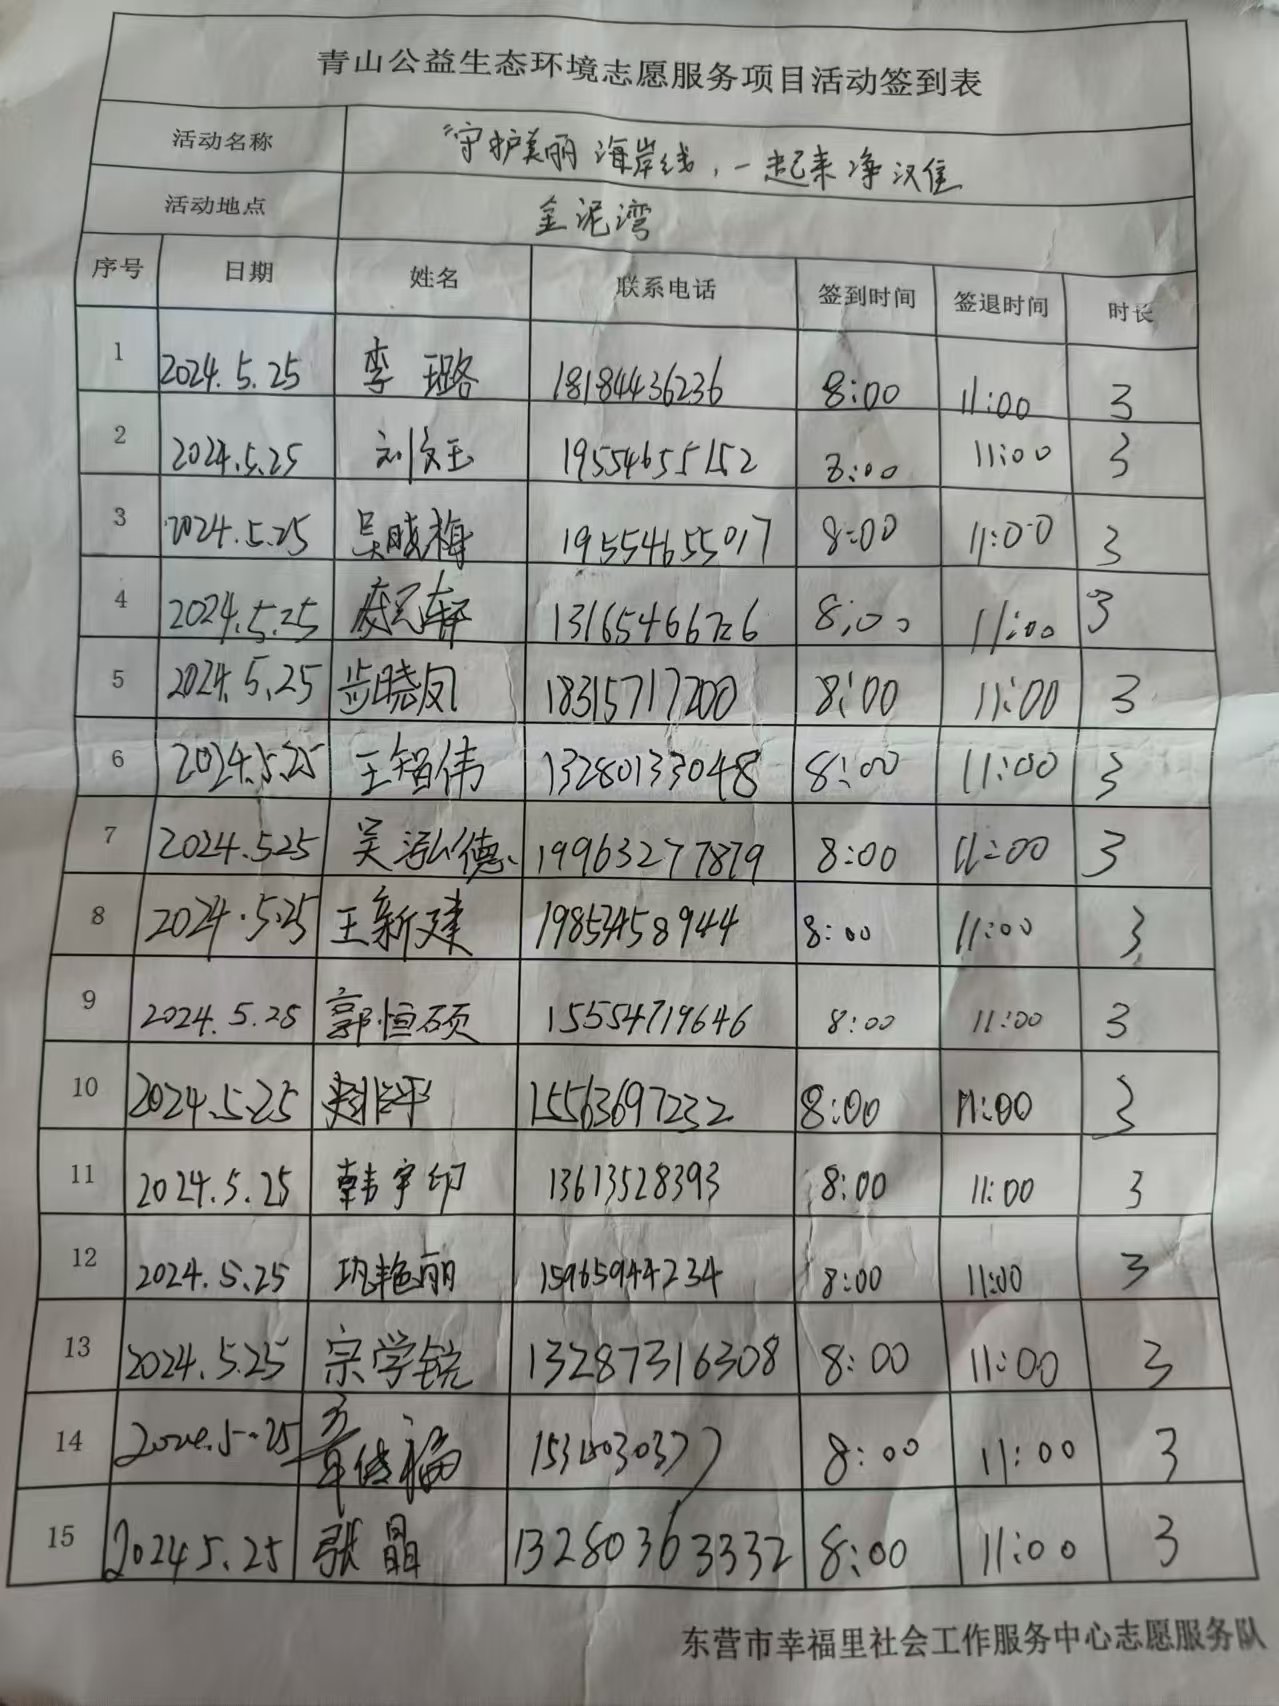 青山公益生态环境志愿服务项目活动签到表
活动名称 "守护美丽海岸线，一起来净滩
活动地点 金泥湾
序号 日期 姓名 联系电话 签到时间 签退时间 时长
1 2024.5.25 李璐 18184436236 8:00 11:00 3
2 2024.5.25 刘文玉 19554655152 8:00 11:00 3
3 2024.5.25 吴晓梅 19554655017 8:00 11:00 3
4 2024.5.25 13165466726 8:00 11:00 3
5 2024.5.25 步晓凤 18315717200 8:00 11:00 3
6 2024.5.25 王智伟 13280133048 8:00 11:00 3
7 2024.525 吴泓德 19963277879 8:00 11:00 3
8 2024.5.25 王新建 19853458944 8:00 11:00 3
9 2024.5.25 郭恒硕 15554719646 8:00 11:00 3
10 2024.5.25 15563697232 8:00 11:00 3
11 2024.5.25 韩宇 13613528393 8:00 11:00 3
12 2024.5.25 巩艳丽 15965944234 8:00 11:00 3
13 2024.5.25 宗学锐 13287316308 8:00 11:00 3
14 2024.5.25 8:00 11:00 3
15 2024 5.25 张晶 13280363332 8:00 11:00 3
东营市幸福里社会工作服务中心志愿服务队